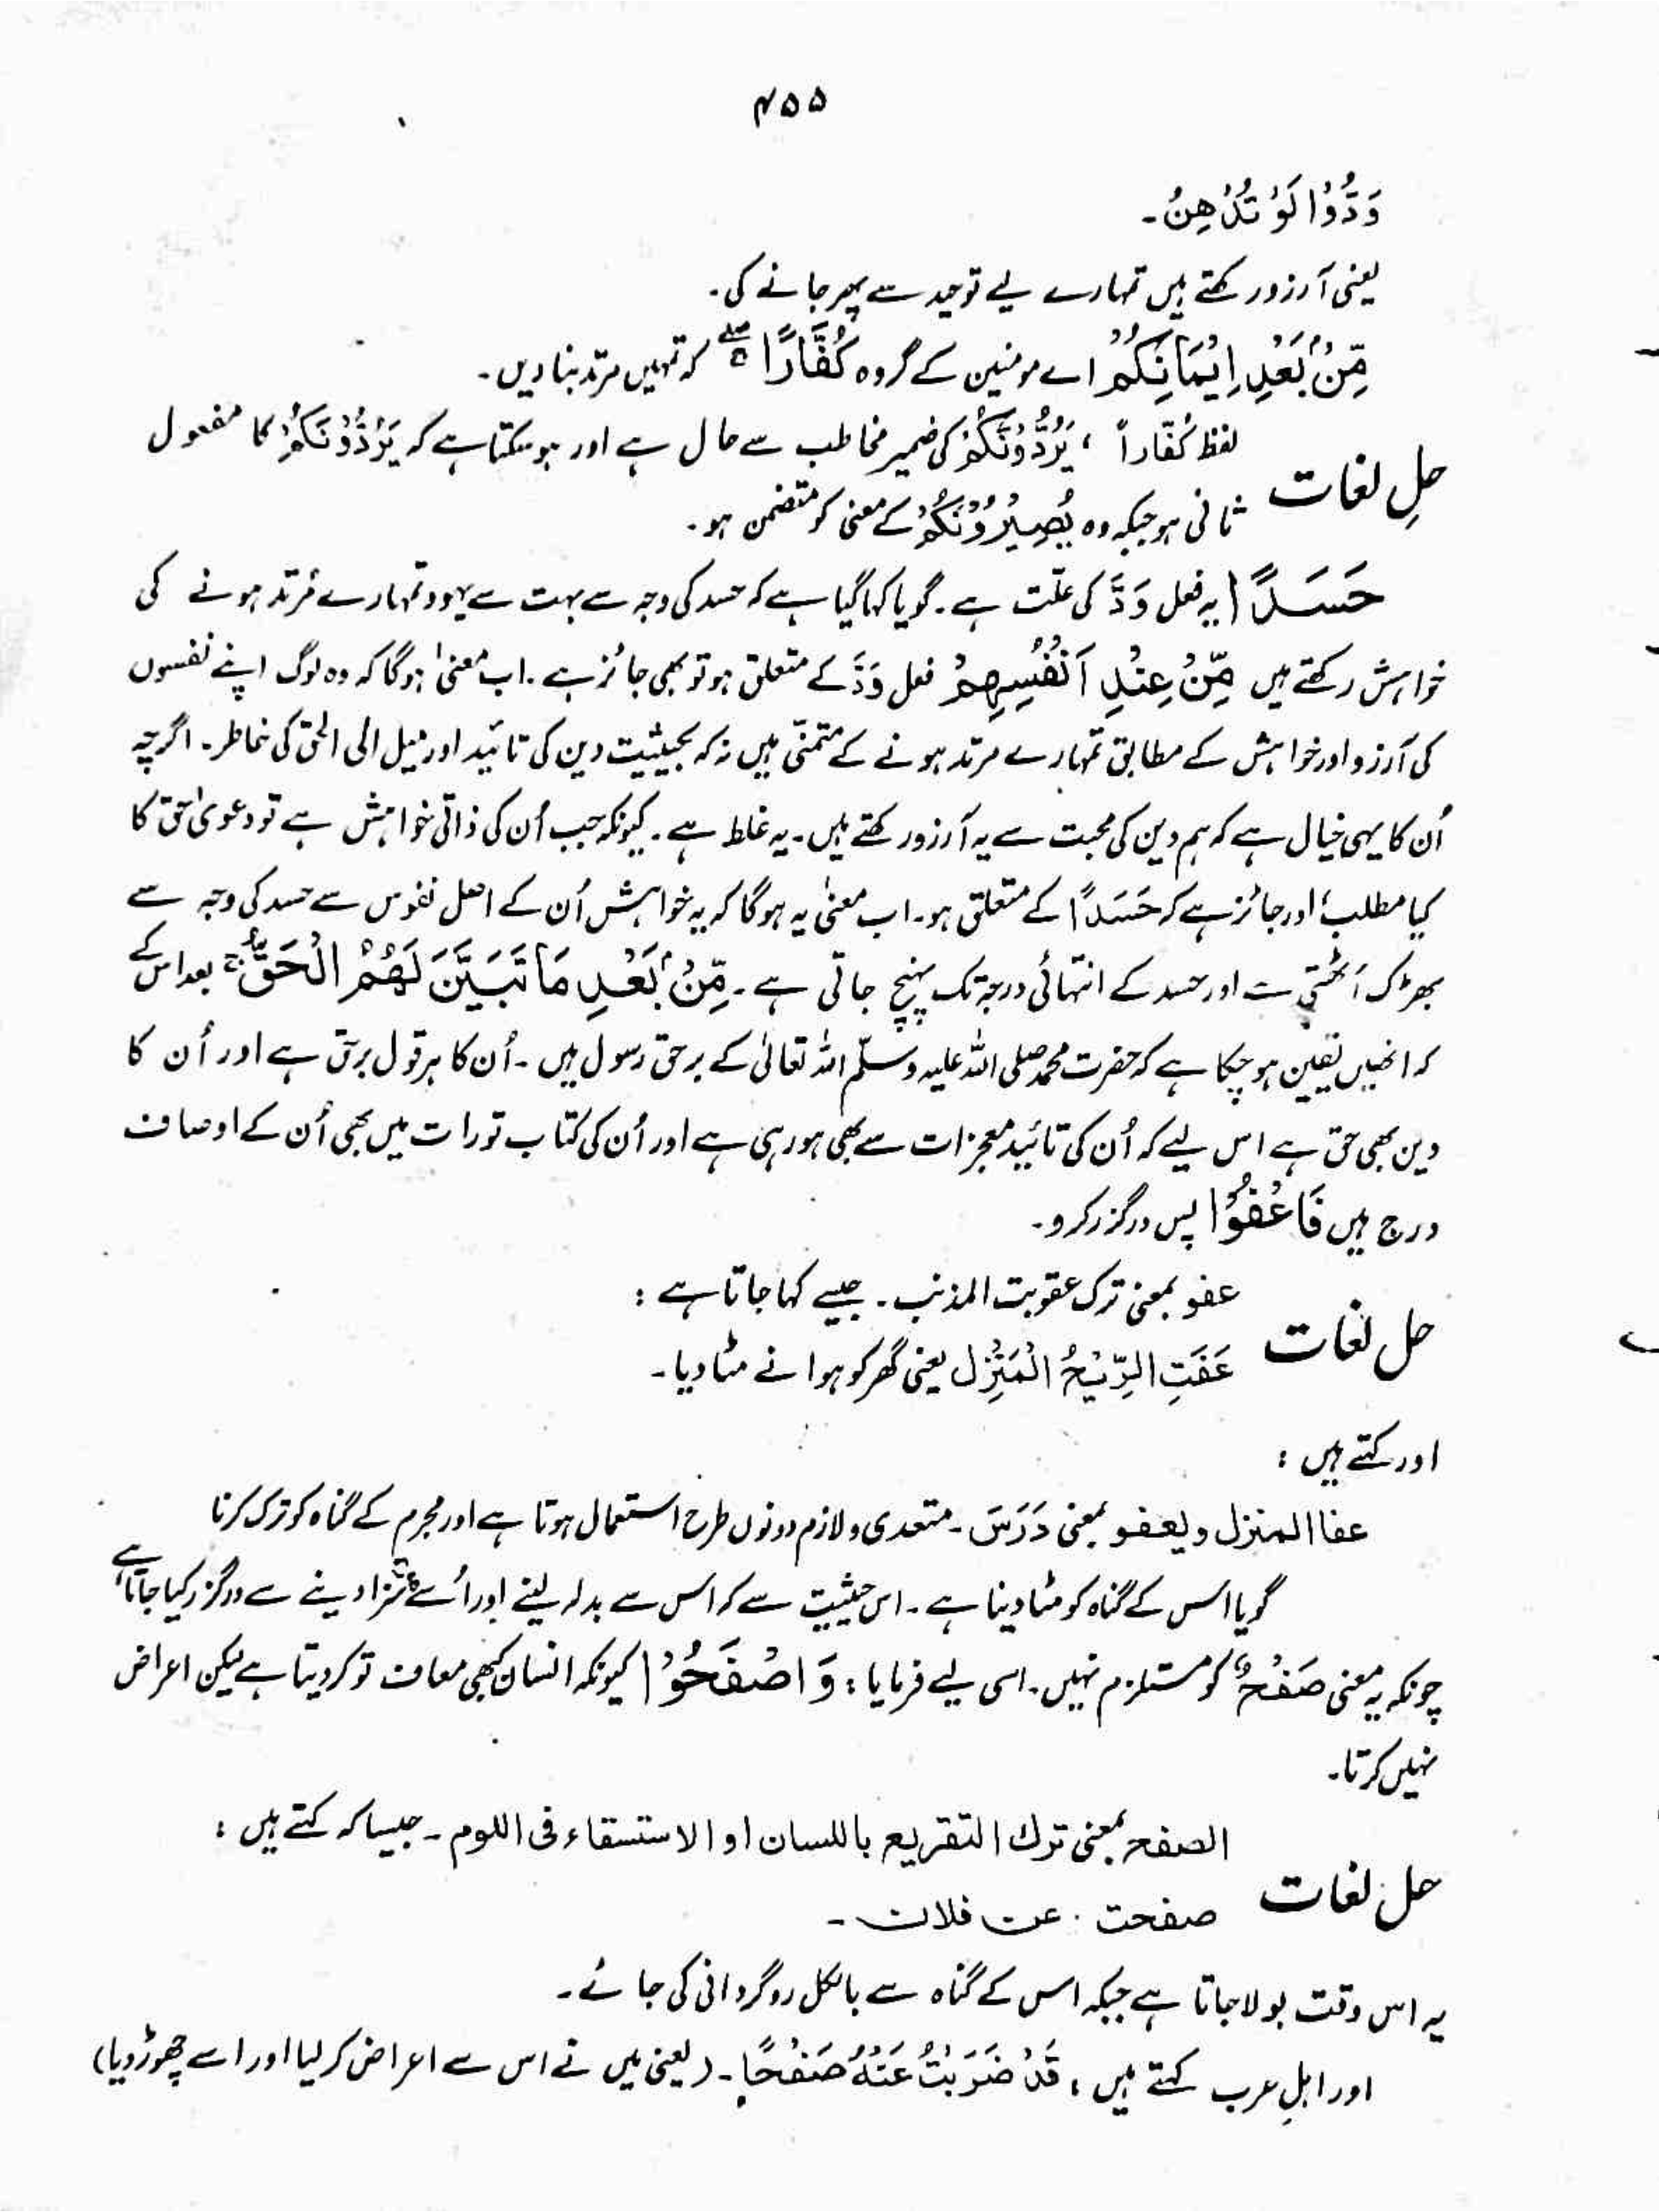 ۴۵۵
وَدُّوْا لَوْ تُدْهِنُ۔
یعنی آرزو رکھتے ہیں تمہارے لیے توحید سے پھر جانے کی۔
مِّنْۢ بَعْدِ اِيْمَانِكُمْ اے مومنین کے گروہ كُفَّارًا ۚۖ کہ تمہیں مرتد بنا دیں۔
حلِ لغات
لفظ کُفّاراً ، يَرُدُّوْنَكُمْ کی ضمیر مخاطب سے حال ہے اور ہو سکتا ہے کہ يَرُدُّوْنَكُمْ کا مفعول
ثانی ہو جبکہ وہ يُصِيْرُوْنَكُمْ کے معنی کو متضمن ہو۔
حَسَدًا یہ فعل وَدَّ کی علّت ہے۔ گویا کہا گیا ہے کہ حسد کی وجہ سے بہت سے یہود تمہارے مُرتد ہونے کی
خواہش رکھتے ہیں مِّنْ عِنْدِ اَنْفُسِهِمْ فعل وَدَّ کے متعلق ہو تو بھی جائز ہے۔ اب معنیٰ ہوگا کہ وہ لوگ اپنے نفسوں
کی آرزو اور خواہش کے مطابق تمہارے مرتد ہونے کے متمنّی ہیں نہ کہ بحیثیت دین کی تائید اور میل الی الحق کی خاطر۔ اگرچہ
اُن کا یہی خیال ہے کہ ہم دین کی محبت سے یہ آرزو رکھتے ہیں۔ یہ غلط ہے۔ کیونکہ جب اُن کی ذاتی خواہش ہے تو دعویٰ حق کا
کیا مطلب؛ اور جائز ہے کہ حَسَدًا کے متعلق ہو۔ اب معنیٰ یہ ہوگا کہ یہ خواہش اُن کے اصل نفوس سے حسد کی وجہ سے
بھڑک اُٹھتی ہے اور حسد کے انتہائی درجہ تک پہنچ جاتی ہے۔ مِّنْۢ بَعْدِ مَا تَبَيَّنَ لَهُمُ الْحَقُّ ۚ بعد اس کے
کہ انھیں یقین ہو چکا ہے کہ حضرت محمد صلی اللہ علیہ وسلّم اللہ تعالیٰ کے برحق رسول ہیں۔ اُن کا ہر قول برحق ہے اور اُن کا
دین بھی حق ہے اس لیے کہ اُن کی تائید معجزات سے بھی ہو رہی ہے اور اُن کی کتاب تورات میں بھی اُن کے اوصاف
درج ہیں فَاعْفُوْا پس درگزر کرو۔
حل لغات
عفو بمعنی ترک عقوبت المذنب۔ جیسے کہا جاتا ہے :
عَفَتِ الرِّيْحُ الْمَنْزِل یعنی گھر کو ہوا نے مٹا دیا۔
اور کہتے ہیں :
عفا المنزل و یعفو بمعنی دَرَسَ۔ متعدی و لازم دونوں طرح استعمال ہوتا ہے اور مجرم کے گناہ کو ترک کرنا
گویا اس کے گناہ کو مٹا دینا ہے۔ اس حیثیت سے کہ اس سے بدلہ لینے اور اُسے سزا دینے سے درگزر کیا جاتا ہے
چونکہ یہ معنی صَفْحٌ کو مستلزم نہیں۔ اسی لیے فرمایا : وَاصْفَحُوْا کیونکہ انسان کبھی معاف تو کر دیتا ہے لیکن اعراض
نہیں کرتا۔
حل لغات
الصفح بمعنی ترك التقريع باللسان او الاستسقاء فی اللوم۔ جیسا کہ کہتے ہیں :
صفحت عن فلان۔
یہ اس وقت بولا جاتا ہے جبکہ اس کے گناہ سے بالکل روگردانی کی جائے۔
اور اہلِ عرب کہتے ہیں : قَدْ ضَرَبْتُ عَنْهُ صَفْحًا۔ (یعنی میں نے اس سے اعراض کر لیا اور اسے چھوڑ دیا)